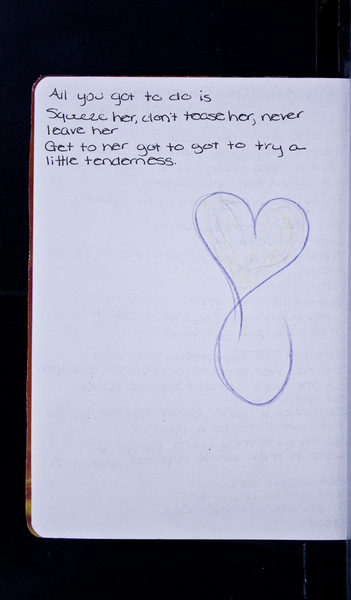 All you got to do is
Squeeze her, don't tease her, never
leave her
Get to her got to got to try a
little tenderness.